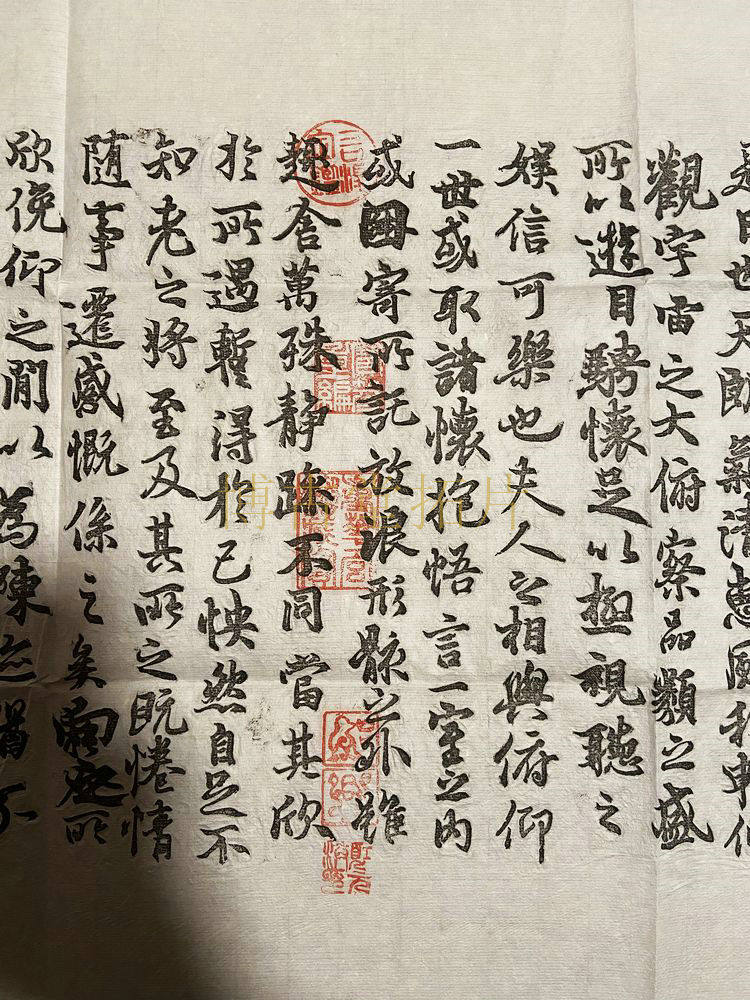 是日也天朗氣清惠風和暢仰
觀宇宙之大俯察品類之盛
所以遊目騁懷足以極視聽之
娛信可樂也夫人之相與俯仰
一世或取諸懷抱悟言一室之內
或因寄所託放浪形骸之外雖
趣舍萬殊静躁不同當其欣
於所遇蹔得於己怏然自足不
知老之將至及其所之既惓情
随事遷感慨係之矣向之所
欣俛仰之閒以為陳迹猶不